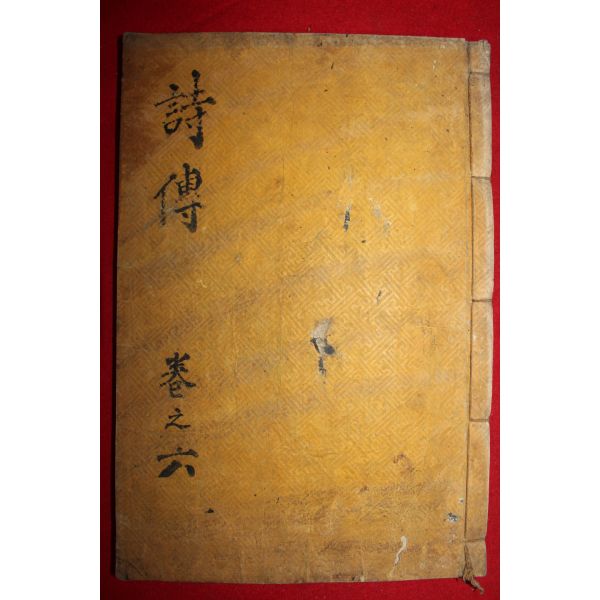 詩傳
卷之六